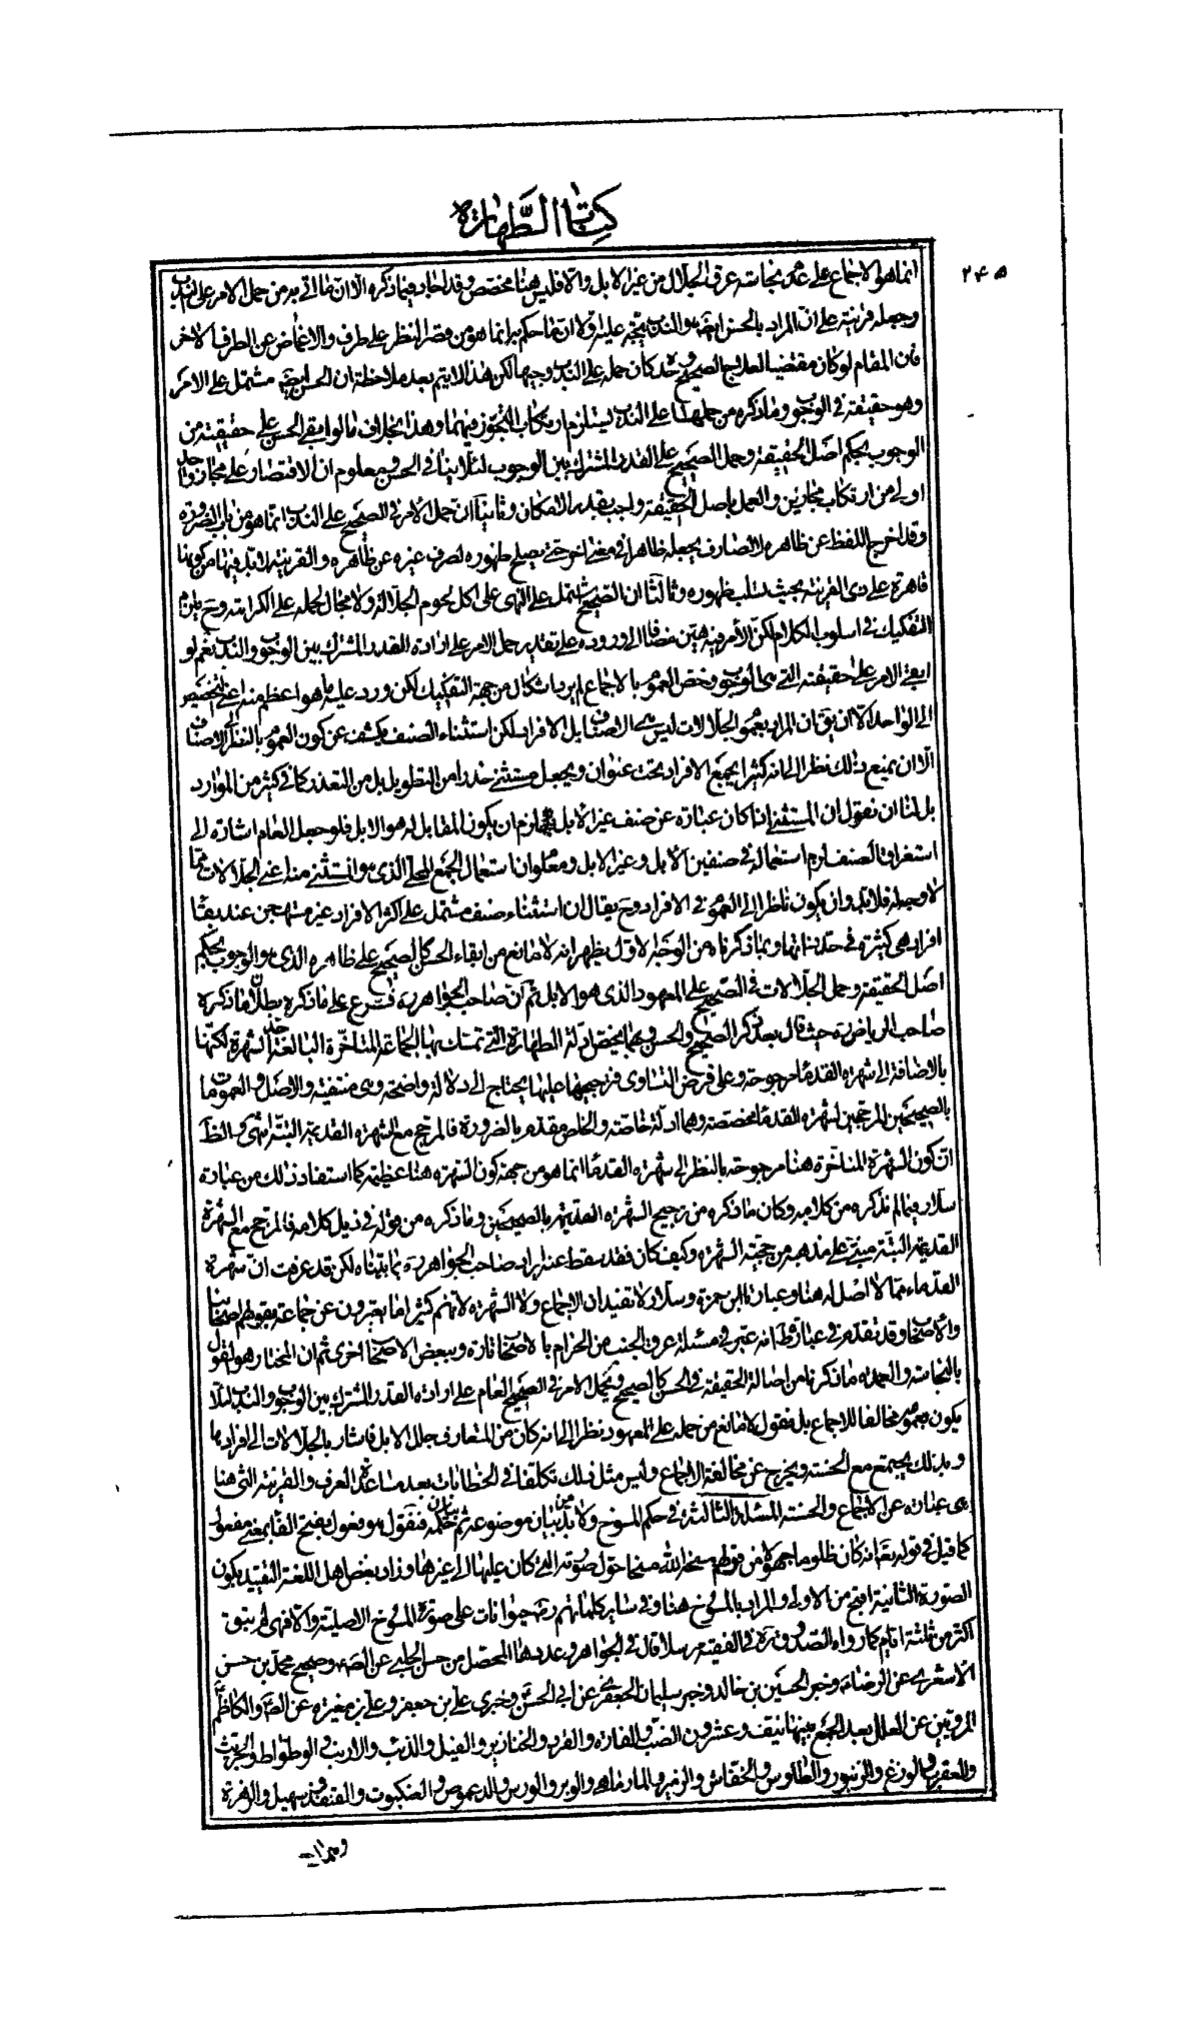 كتاب الطهارة
٢٤٥
انما هو الاجماع على عدم نجاسة عرق الجلال من غير الابل والا فليس هنا مخصص وقد اجاد فيما ذكره الا ان ما اتى به من حمل الامر على الندب
وجعله قرينة على ان المراد بالحسن ايضا هو الندب يتجه عليه اولا ان ما حكم به انما هو من قصر النظر على طرف والاغماض عن الطرف الاخر
فان المقام لو كان مقتضيا لعلاج الصحيح وحده كان حمله على الندب وجيها لكن هذا لا يتم بعد ملاحظة ان الحسن ايضا مشتمل على الامر
وهو حقيقة في الوجوب وما ذكره من حملهما على الندب يستلزم ارتكاب التجوز فيهما وهذا بخلاف ما لو ابقى الحسن على حقيقته من
الوجوب بحكم اصل الحقيقة وحمل الصحيح على القدر المشترك بين الوجوب لئلا ينافي الحسن ومعلوم ان الاقتصار على مجاز واحد
اولى من ارتكاب مجازين والعمل باصل الحقيقة واجب بقدر الامكان وثانيا ان حمل الامر في الصحيح على الندب انما هو من باب الضرورة
وقد اخرج اللفظ عن ظاهره لا الصارف يجعله ظاهرا في معنى اخر حتى يصلح ظهوره لصرف غيره عن ظاهره والقرينة لابد فيها من كونها
قاهرة على ذي القرينة بحيث تسلب ظهوره وثالثا ان الصحيح مشتمل على النهي على اكل لحوم الجلالة ولا مجال لحمله على الكراهة وح يلزم
التفكيك في اسلوب الكلام لكن الامر فيه هين مضافا الى وروده على تقدير حمل الامر على ارادة القدر المشترك بين الوجوب والندب نعم لو
ابقى الامر على حقيقته التي هي الوجوب وخص العموم بالاجماع لم يرد اشكال من جهة التفكيك لكن ورد عليه ما هو اعظم منه اعني التخصيص
الى الواحد الا ان يق ان المراد بعموم الجلالات ليس هي الاصناف بل الافراد لكن استثناء الصنف يكشف عن كون العموم بالنظر الى الاصناف
الا ان يمنع ذلك نظرا الى انه كثيرا يجمع الافراد تحت عنوان ويجعل مستثنى حذرا من التطويل بل من التعذر كما في كثير من الموارد
بل لنا ان نقول ان المستثنى اذا كان عبارة عن صنف غير الابل لزم ان يكون المقابل له هو الابل فلو جعل العام اشارة الى
استغراق الصنف لزم استعماله في صنفين الابل وغير الابل ومعلوم ان استعمال الجمع المحلى الذي هو المستثنى منه اعني الجلالات مما
لا وجه له فلابد وان يكون ناظرا الى العموم في الافراد وح يقال ان استثناء صنف مشتمل على اكثر الافراد غير مستهجن عند بقاء
افراد هي كثيرة في حد ذاتها وبما ذكرناه من الوجه الاول يظهر انه لا مانع من ابقاء الحسن كالصحيح على ظاهره الذي هو الوجوب بحكم
اصل الحقيقة وحمل الجلالات في الصحيح على المعهود الذي هو الابل ثم ان صاحب الجواهر ره فرع على ما ذكره بطلان ما ذكره
صاحب الرياض ره حيث قال بعد ذكر الصحيح والحسن وبهما يخص ادلة الطهارة التي تمسك بها الجماعة المتاخرة البالغة حد الشهرة لكنها
بالاضافة الى شهرة القدماء مرجوحة وعلى فرض التساوى فترجيحها عليها يحتاج الى دلالة واضحة وهي منتفية والاصل والعمومات
بالصحيحين المرجحين لشهرة القدماء مخصصة وهما ادلة خاصة والخاص مقدم بالضرورة فالمرجح مع الشهرة القديمة البتة انتهى والظ
ان كون الشهرة المتاخرة هنا مرجوحة بالنظر الى شهرة القدماء انما هو من جهة كون الشهرة هنا عظيمة كما استفاد ذلك من عبارة
سلار فيما لم نذكره من كلامه وكان ما ذكره من ترجيح الشهرة القديمة بالصحيحين وما ذكره من قوله في ذيل كلامه فالمرجح مع الشهرة
القديمة البتة مبتن على مذهبه من حجية الشهرة وكيف كان فقد سقط عنه ايراد صاحب الجواهر ره بما بيناه لكن قد عرفت ان شهرة
القدماء مما لا اصل له هنا وعبارة ابن حمزة وسلار لا تفيدان الاجماع ولا الشهرة لانهم كثيرا ما يعبرون عن جماعة بقولهم اصحابنا
والاصحاب وقد تقدم في عبارة انه عبر في مسئلة عرق الجنب من الحرام بالاصحاب تارة وببعض الاصحاب اخرى ثم ان المختار هو القول
بالنجاسة والعمدة ما ذكرنا من اصالة الحقيقة في الحسن كالصحيح ونحمل الامر في الصحيح العام على ارادة القدر المشترك بين الوجوب والندب لئلا
يكون بعمومه مخالفا للاجماع بل نقول لا مانع من حمله على المعهود نظرا الى انه كان من المتعارف جلل الابل فاشار بالجلالات الى افرادها
وبذلك يجتمع مع الحسنة ويخرج عن مخالفة الاجماع وليس مثل ذلك تكلفا في الخطابات بعد مساعدة العرف والقرينة التي هنا
هي عبارة عن الاجماع والحسنة المسئلة الثالثة في حكم المسوخ ولابد من بيان موضوعه ثم بيان حكمه فنقول هو فعول بفتح الفاء بمعنى مفعول
كما قيل في قوله تعالى انه كان ظلوما جهولا من قولهم مسخه الله مسخا حول صورته التي كان عليها الى غيرها وزاد بعض اهل اللغة التقييد بكون
الصورة الثانية اقبح من الاولى والمراد بالمسوخ هنا وفي ساير كلماتهم رضهم حيوانات على صورة المسوخ الاصلية والا فهي لم تبق
اكثر من ثلثة ايام كما رواه الصدوق ره في الفقيه مرسلا قال في الجواهر وعددها المحصل من حسن الحلبي عن الصادق وصحيح محمد بن حسن
الاشعري عن الرضا وخبر الحسين بن خالد وخبر سليمان الجعفري عن ابي الحسن وخبرى على بن جعفر وعلى بن مغيرة عن الصادق والكاظم
المرويين عن العلل بعد الجمع بينها نيف وعشرون الضب والفارة والقرد والخنازير والفيل والذئب والارنب والوطواط والجريث
والعقرب والوزغ والزنبور والطاوس والخفاش والزمير والمارماهي والوبر والورس والدعموص والعنكبوت والقنفذ وسهيل والزهرة